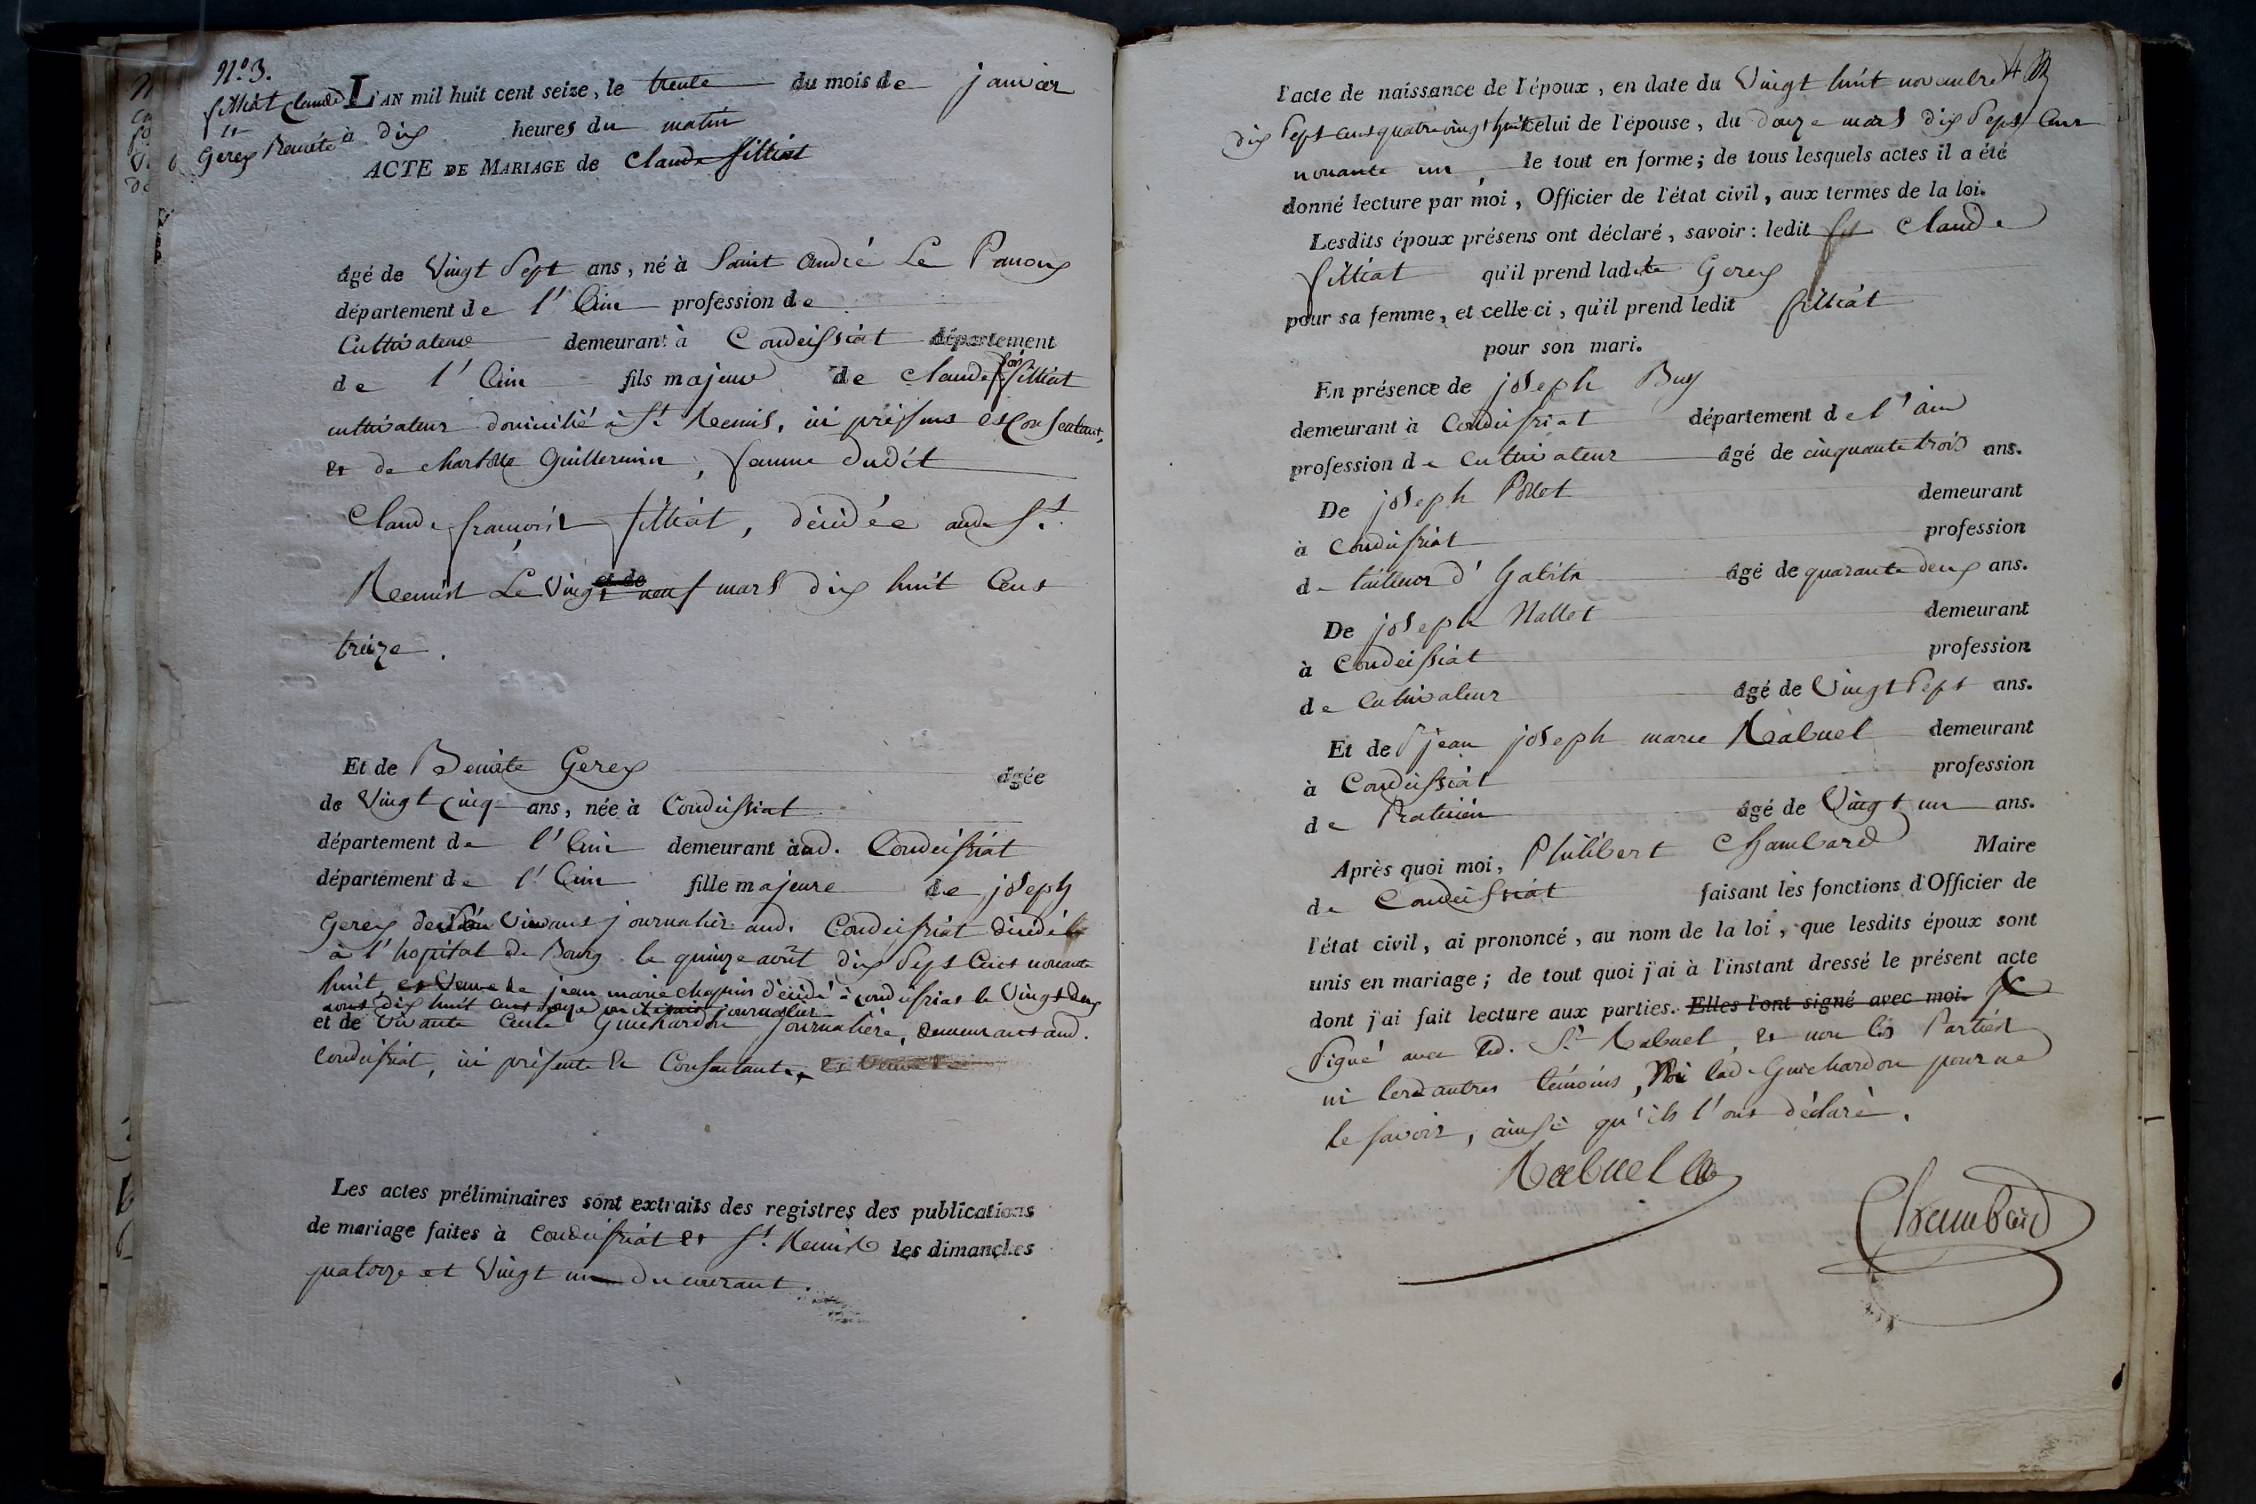 N.o 3.
filliat Claude
et
Gerex Benoite
L'AN mil huit cent seize, le trente du mois de janvier
à dix heures du matin
ACTE DE MARIAGE de Claude filliat
âgé de Vingt Sept ans, né à Saint André Le Panoux
département de l'Ain profession de
Cultivateur demeurant à Condeissiat département
de l'Ain fils majeur de Claude fois filliat
cultivateur domicilié à St. Remis, ici présent et Consentant,
et de charlotte Guillermin, femme dudit
Claude françois filliat, décédée aud. St.
Remist Le Vingt neuf mars dix huit Cent
treize.
Et de Benoite Gerex âgée
de Vingt cinq ans, née à Condeissiat
département de l'Ain demeurant aud. Condeissiat
département de l'Ain fille majeure de joseph
Gerex de son Vivant journalier aud. Condeissiat décédé
à l'hopital de Bourg le quinze août dix Sept Cent nonante
huit, et Veuve de jean marie chapuis décédé à condeissiat le Vingt deux
août dix huit cent onze journalier
et de Vivante Guichardon journalière, demeurant aud.
Condeissiat, ici présente et Consentante, et Veuve
Les actes préliminaires sont extraits des registres des publications
de mariage faites à Condeissiat et St. Remist les dimanches
quatorze et Vingt un du courant.
l'acte de naissance de l'époux, en date du Vingt huit novembre
dix Sept cent quatre vingt huit celui de l'épouse, du douze mars dix Sept Cent
nonante un, le tout en forme; de tous lesquels actes il a été
donné lecture par moi, Officier de l'état civil, aux termes de la loi.
Lesdits époux présens ont déclaré, savoir: ledit Claude
filliat qu'il prend ladite Gerex
pour sa femme, et celle-ci, qu'il prend ledit filliat
pour son mari.
En présence de joseph Buy
demeurant à Condeissiat département de l'ain
profession de Cultivateur âgé de cinquante trois ans.
De joseph Pollet demeurant
à Condeissiat profession
de tailleur d'habits âgé de quarante deux ans.
De joseph Nallet demeurant
à Condeissiat profession
de Cultivateur âgé de Vingt Sept ans.
Et de Sr jean joseph marie Rabuel demeurant
à Condeissiat profession
de Praticien âgé de Vingt un ans.
Après quoi moi, Philibert Chambard Maire
de Condeissiat faisant les fonctions d'Officier de
l'état civil, ai prononcé, au nom de la loi, que lesdits époux sont
unis en mariage; de tout quoi j'ai à l'instant dressé le présent acte
dont j'ai fait lecture aux parties. Elles l'ont signé avec moi.
Signé avec led. Sr. Rabuel, et non les Parties
ni les autres témoins, Ni lad. Guichardon pour ne
le savoir, ainsi qu'ils l'ont déclaré.
Rabuel
Chambard